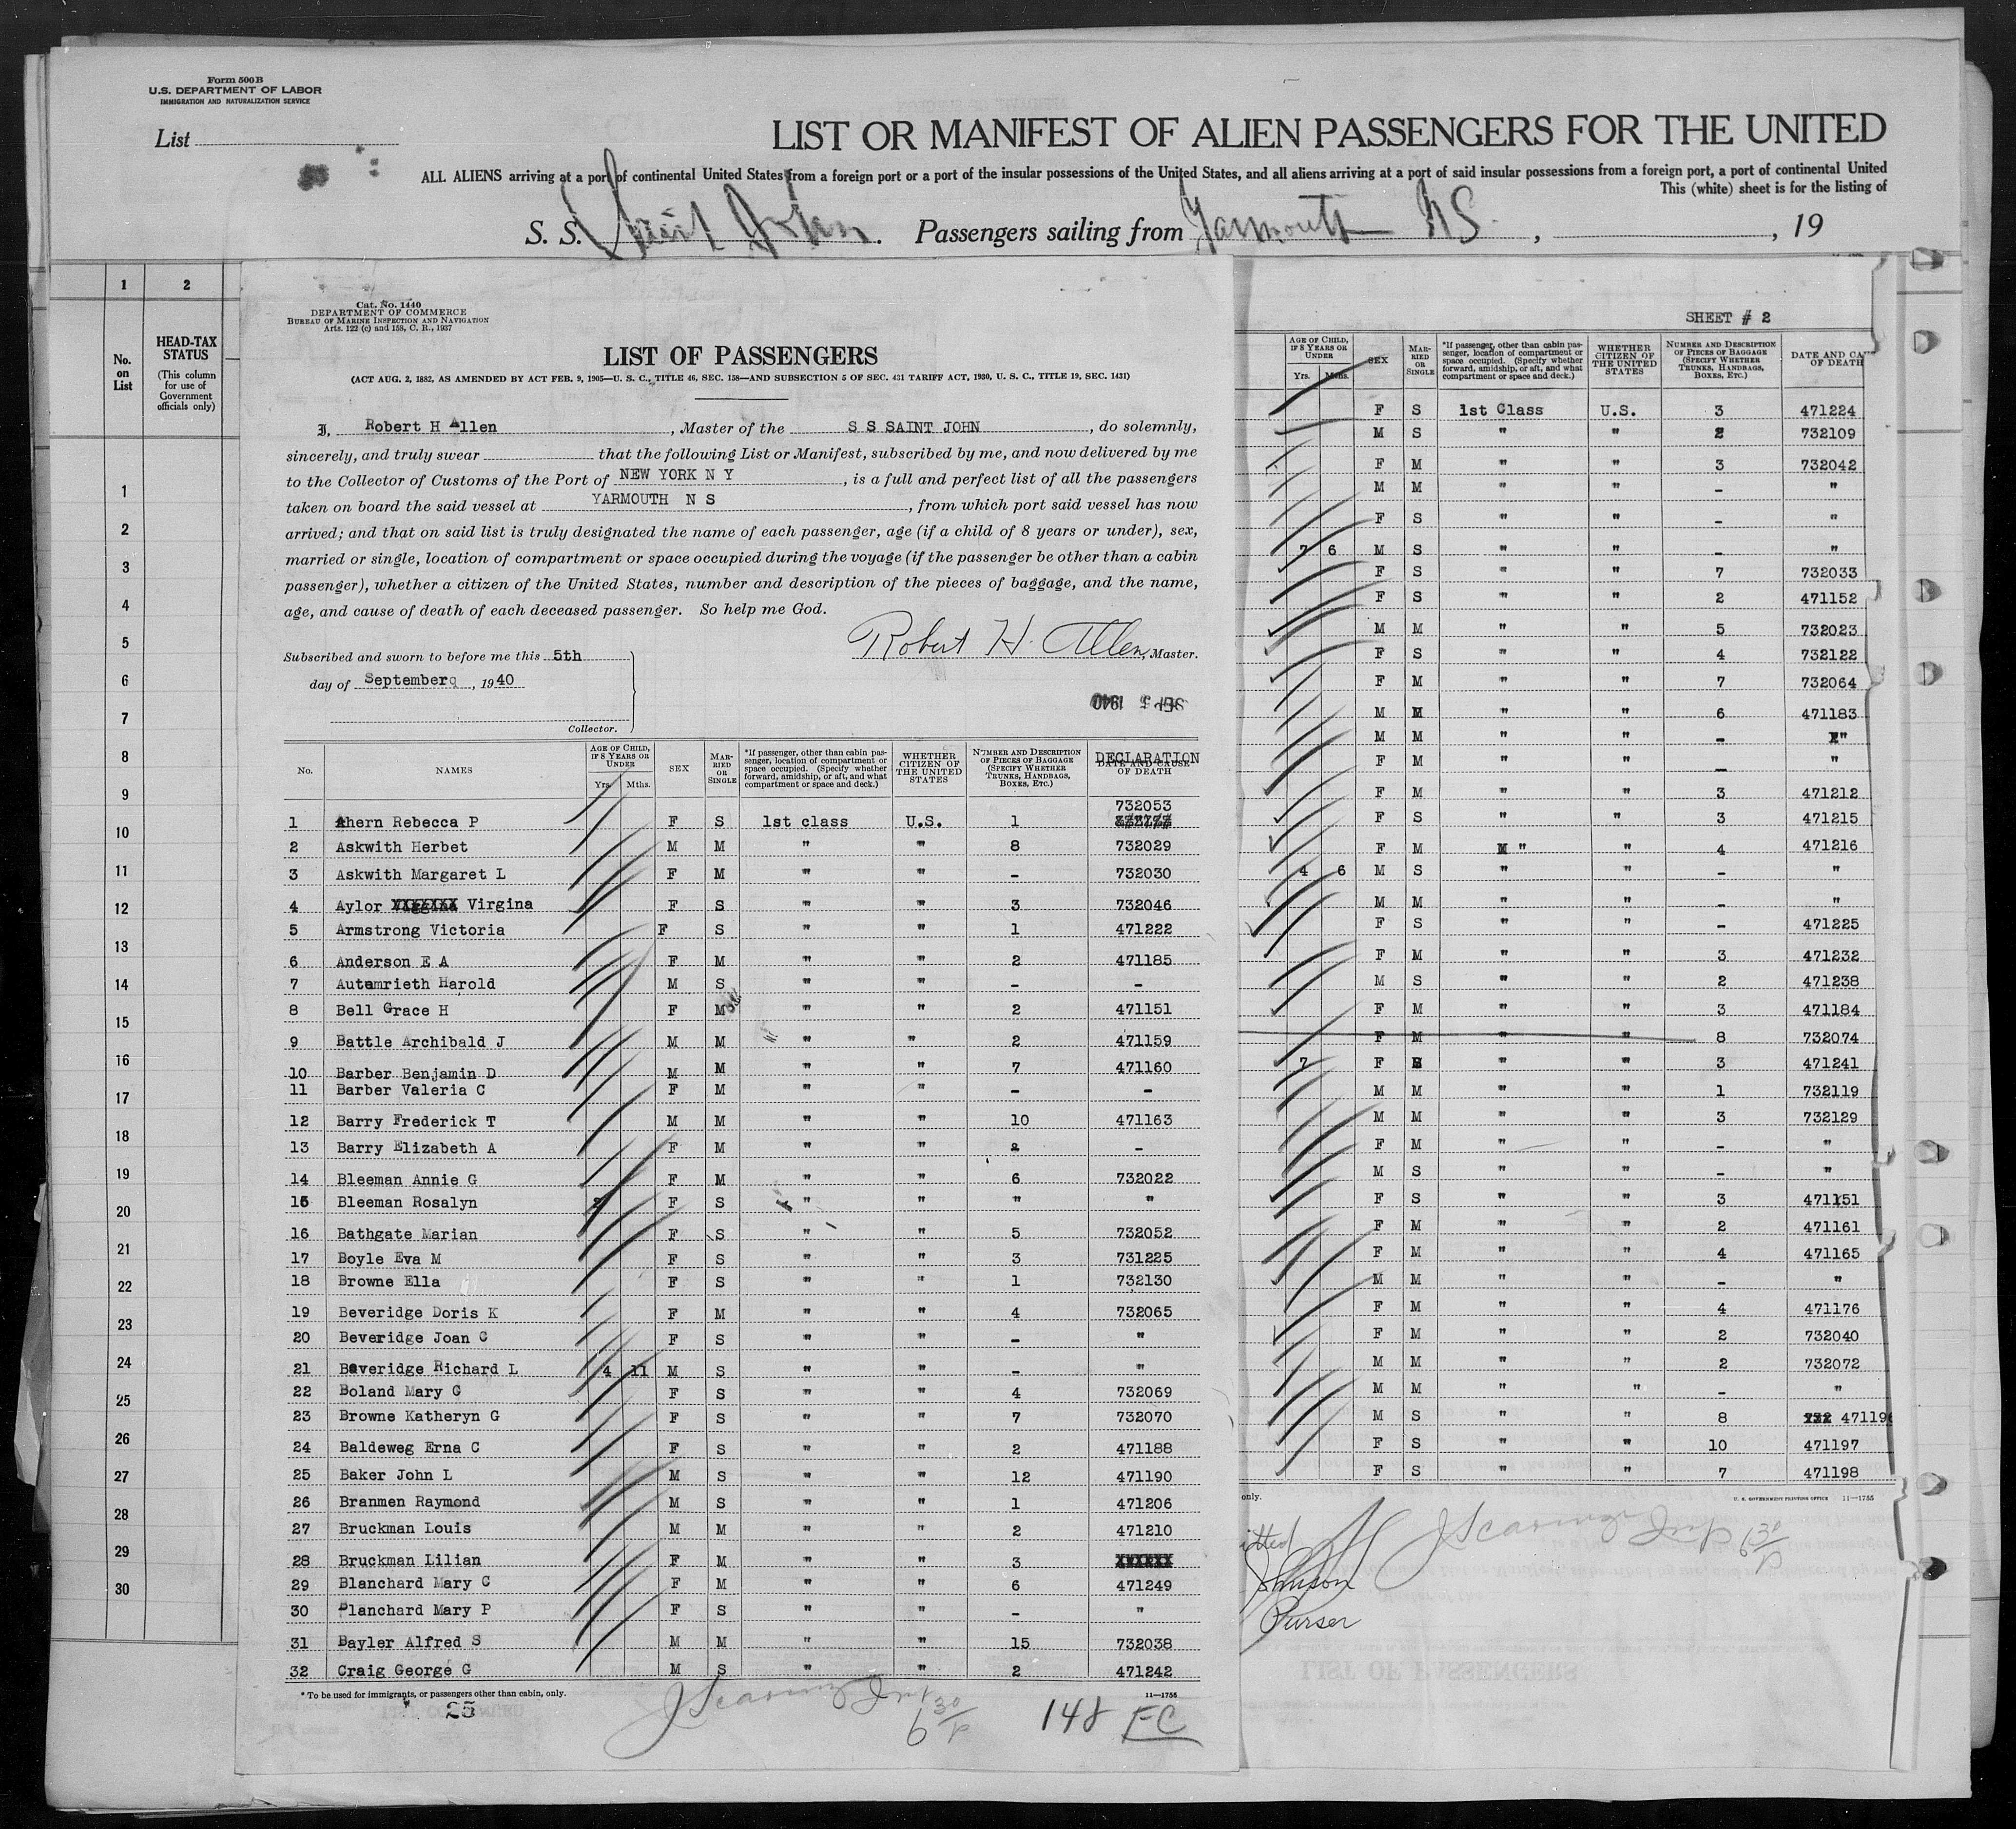 Form 500 B
U.S. DEPARTMENT OF LABOR
IMMIGRATION AND NATURALIZATION SERVICE
List
LIST OR MANIFEST OF ALIEN PASSENGERS FOR THE UNITED
ALL ALIENS arriving at a port of continental United States from a foreign port or a port of the insular possessions of the United States, and all aliens arriving at a port of said insular possessions from a foreign port, a port of continental United
This (white) sheet is for the listing of
S. S. Saint John. Passengers sailing from Yarmouth NS. , , 19
1 2
No. on List
HEAD-TAX STATUS
(This column for use of Government officials only)
1
2
3
4
5
6
7
8
9
10
11
12
13
14
15
16
17
18
19
20
21
22
23
24
25
26
27
28
29
30
Cat. No. 1440
DEPARTMENT OF COMMERCE
BUREAU OF MARINE INSPECTION AND NAVIGATION
Arts. 122 (c) and 158, C. R., 1937
LIST OF PASSENGERS
(ACT AUG. 2, 1882, AS AMENDED BY ACT FEB. 9, 1905—U. S. C., TITLE 46, SEC. 158—AND SUBSECTION 5 OF SEC. 431 TARIFF ACT, 1930, U. S. C., TITLE 19, SEC. 1431)
I, Robert H Allen , Master of the S S SAINT JOHN , do solemnly,
sincerely, and truly swear that the following List or Manifest, subscribed by me, and now delivered by me
to the Collector of Customs of the Port of NEW YORK N Y , is a full and perfect list of all the passengers
taken on board the said vessel at YARMOUTH N S , from which port said vessel has now
arrived; and that on said list is truly designated the name of each passenger, age (if a child of 8 years or under), sex,
married or single, location of compartment or space occupied during the voyage (if the passenger be other than a cabin
passenger), whether a citizen of the United States, number and description of the pieces of baggage, and the name,
age, and cause of death of each deceased passenger. So help me God.
Robert H. Allen, Master.
Subscribed and sworn to before me this 5th
day of September , 1940
SEP 5 1940
Collector.
No. NAMES AGE OF CHILD, IF 8 YEARS OR UNDER Yrs. Mths. SEX MARRIED OR SINGLE *If passenger, other than cabin passenger, location of compartment or space occupied. (Specify whether forward, amidship, or aft, and what compartment or space and deck.) WHETHER CITIZEN OF THE UNITED STATES NUMBER AND DESCRIPTION OF PIECES OF BAGGAGE (SPECIFY WHETHER TRUNKS, HANDBAGS, BOXES, ETC.) DECLARATION DATE AND CAUSE OF DEATH
732053
1 Ahern Rebecca P F S 1st class U.S. 1
2 Askwith Herbet M M " " 8 732029
3 Askwith Margaret L F M " " - 732030
4 Aylor Virgina F S " " 3 732046
5 Armstrong Victoria F S " " 1 471222
6 Anderson E A F M " " 2 471185
7 Autamrieth Harold M S " " - -
8 Bell Grace H F M " " 2 471151
9 Battle Archibald J M M " " 2 471159
10 Barber Benjamin D M M " " 7 471160
11 Barber Valeria C F M " " - -
12 Barry Frederick T M M " " 10 471163
13 Barry Elizabeth A F M " " -
14 Bleeman Annie G F M " " 6 732022
15 Bleeman Rosalyn 2 F S " " " "
16 Bathgate Marian F S " " 5 732052
17 Boyle Eva M F S " " 3 731225
18 Browne Ella F S " " 1 732130
19 Beveridge Doris K F M " " 4 732065
20 Beveridge Joan C F S " " - "
21 Beveridge Richard L 4 11 M S " " - "
22 Boland Mary G F S " " 4 732069
23 Browne Katheryn G F S " " 7 732070
24 Baldeweg Erna C F S " " 2 471188
25 Baker John L M S " " 12 471190
26 Branmen Raymond M S " " 1 471206
27 Bruckman Louis M M " " 2 471210
28 Bruckman Lilian F M " " 3 XXXXXX
29 Blanchard Mary C F M " " 6 471249
30 Blanchard Mary P F S " " - "
31 Bayler Alfred S M M " " 15 732038
32 Craig George G M S " " 2 471242
* To be used for immigrants, or passengers other than cabin, only.
11—1755
25
6 30/P
148 EC
SHEET # 2
AGE OF CHILD, IF 8 YEARS OR UNDER Yrs. Mths. SEX MARRIED OR SINGLE *If passenger, other than cabin passenger, location of compartment or space occupied. (Specify whether forward, amidship, or aft, and what compartment or space and deck.) WHETHER CITIZEN OF THE UNITED STATES NUMBER AND DESCRIPTION OF PIECES OF BAGGAGE (SPECIFY WHETHER TRUNKS, HANDBAGS, BOXES, ETC.) DATE AND CA OF DEATH
F S 1st Class U.S. 3 471224
M S " " 2 732109
F M " " 3 732042
M M " " - "
F S " " - "
7 6 M S " " - "
F S " " 7 732033
F S " " 2 471152
M M " " 5 732023
F S " " 4 732122
F M " " 7 732064
M M " " 6 471183
M M " " - "
F M " " - "
F M " " 3 471212
F S " " 3 471215
F M " " 4 471216
4 6 M S " " - "
M M " " - "
F S " " - 471225
F M " " 3 471232
M S " " 2 471238
F M " " 3 471184
F M " " 8 732074
7 F S " " 3 471241
M M " " 1 732119
M M " " 3 732129
F M " " - "
M S " " - "
F S " " 3 471151
F M " " 2 471161
F M " " 4 471165
M M " " - "
F M " " 4 471176
F M " " 2 732040
M M " " 2 732072
M M " " - "
M S " " 8 471196
F S " " 10 471197
F S " " 7 471198
only.
U. S. GOVERNMENT PRINTING OFFICE 11—1755
itted
Johnson
Purser
6 30/P